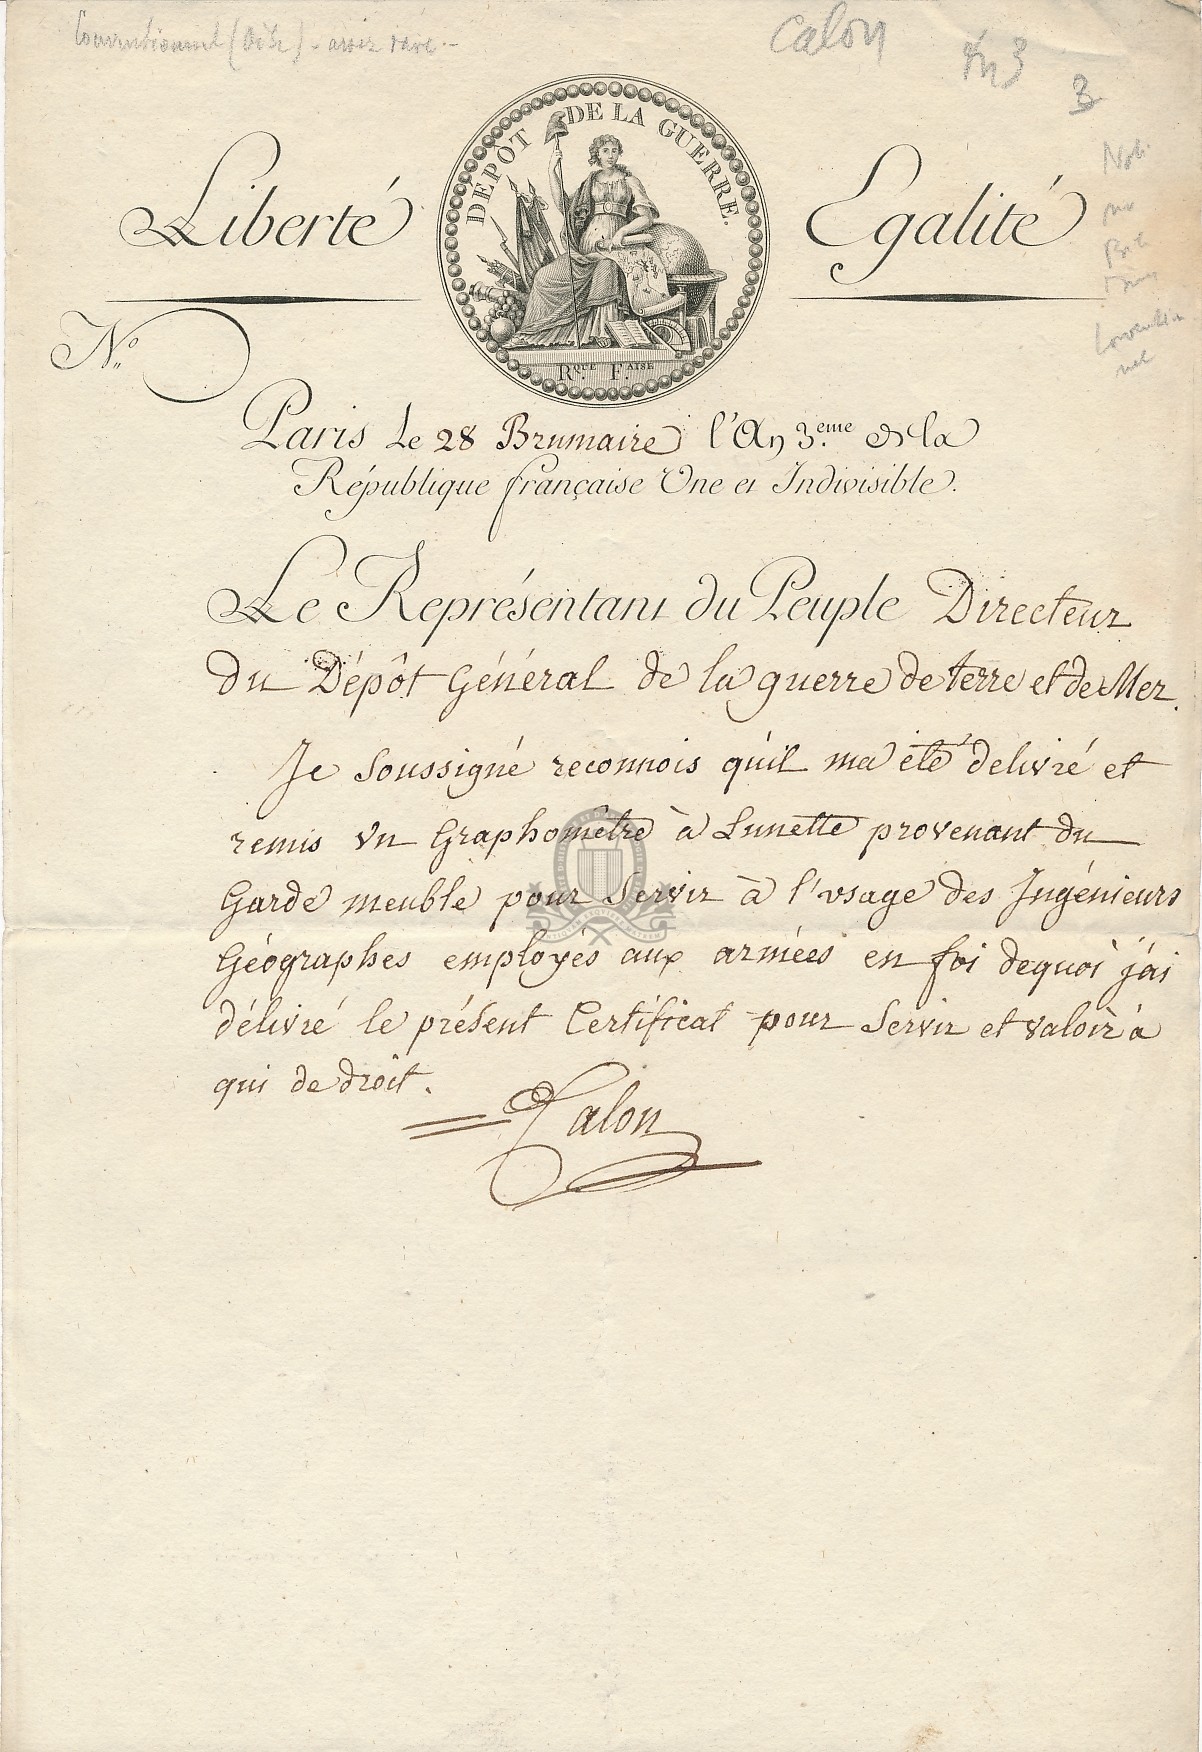 Conventionnel (Oise) - assez rare -
Calon
3
DÉPÔT DE LA GUERRE.
Liberté Egalité
N.º
R.QUE F.AISE
Paris Le 28 Brumaire l'An 3.eme de la
République française Une et Indivisible.
Le Représentant du Peuple Directeur
du Dépôt Général de la guerre de terre et de Mer.
Je Soussigné reconnois qu'il ma été delivré et
remis un Graphomètre à Lunette provenant du
Garde meuble pour Servir à l'usage des Ingénieurs
Géographes employés aux armées en foi dequoi j'ai
délivré le présent Certificat pour Servir et valoir à
qui de droit.
Calon